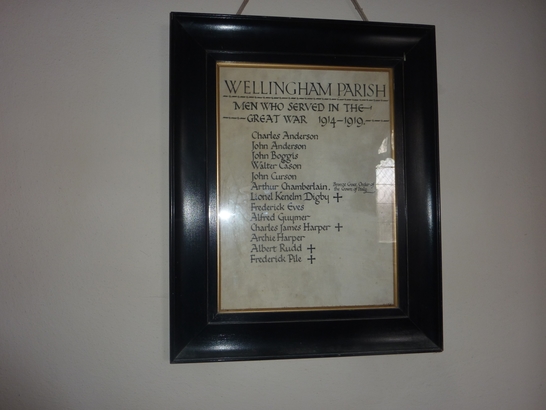 WELLINGHAM PARISH
MEN WHO SERVED IN THE
GREAT WAR 1914–1919.
Charles Anderson
John Anderson
John Boggis
Walter Cason
John Curson
Arthur Chamberlain,
Lionel Kenelm Digby +
Frederick Eves
Alfred Guymer
Charles James Harper +
Archie Harper
Albert Rudd +
Frederick Pile +